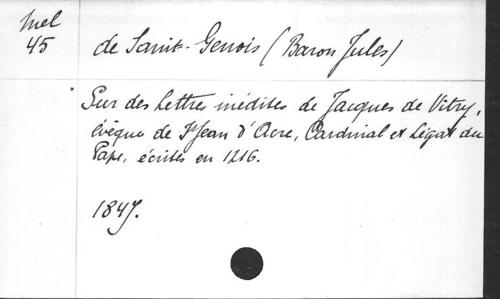 Mel
45
de Saint-Genois (Baron Jules)
Sur des lettres inédites de Jacques de Vitry,
évêque de St Jean d'Acre, Cardinal et Légat du
Pape, écrites en 1216.
1847.